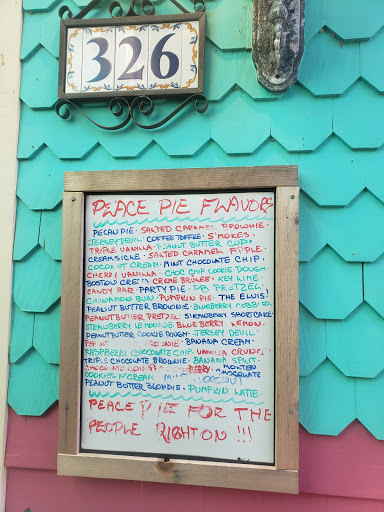 326
PEACE PIE FLAVORS
PECAN PIE · SALTED CARAMEL BROWNIE ·
JERSEY DEVIL · COFFEE TOFFEE · S'MORES ·
TRIPLE VANILLA · PEANUT BUTTER CUP ·
CREAMSICKLE · SALTED CARAMEL APPLE ·
COCONUT CREAM · MINT CHOCOLATE CHIP ·
CHERRY VANILLA · CHOC CHIP COOKIE DOUGH
BOSTON CREAM · CREME BRULEE · KEY LIME ·
CANDY BAR · PARTY PIE · PB PRETZEL ·
CINNAMON BUN · PUMPKIN PIE · THE ELVIS!
PEANUT BUTTER BROWNIE · BLUEBERRY COBBLER
PEANUT BUTTER PRETZEL · STRAWBERRY SHORTCAKE ·
STRAWBERRY LEMONADE · BLUEBERRY LEMON ·
PEANUT BUTTER COOKIE DOUGH · JERSEY DEVIL ·
BANANA CREAM ·
RASPBERRY CHOCOLATE CHIP · VANILLA CRUNCH ·
TRIPLE CHOCOLATE BROWNIE · BANANA SPLIT ·
COOKIES N' CREAM · CHOCOLATE
PEANUT BUTTER BLONDIE · PUMPKIN LATTE ·
PEACE PIE FOR THE
PEOPLE RIGHT ON !!!